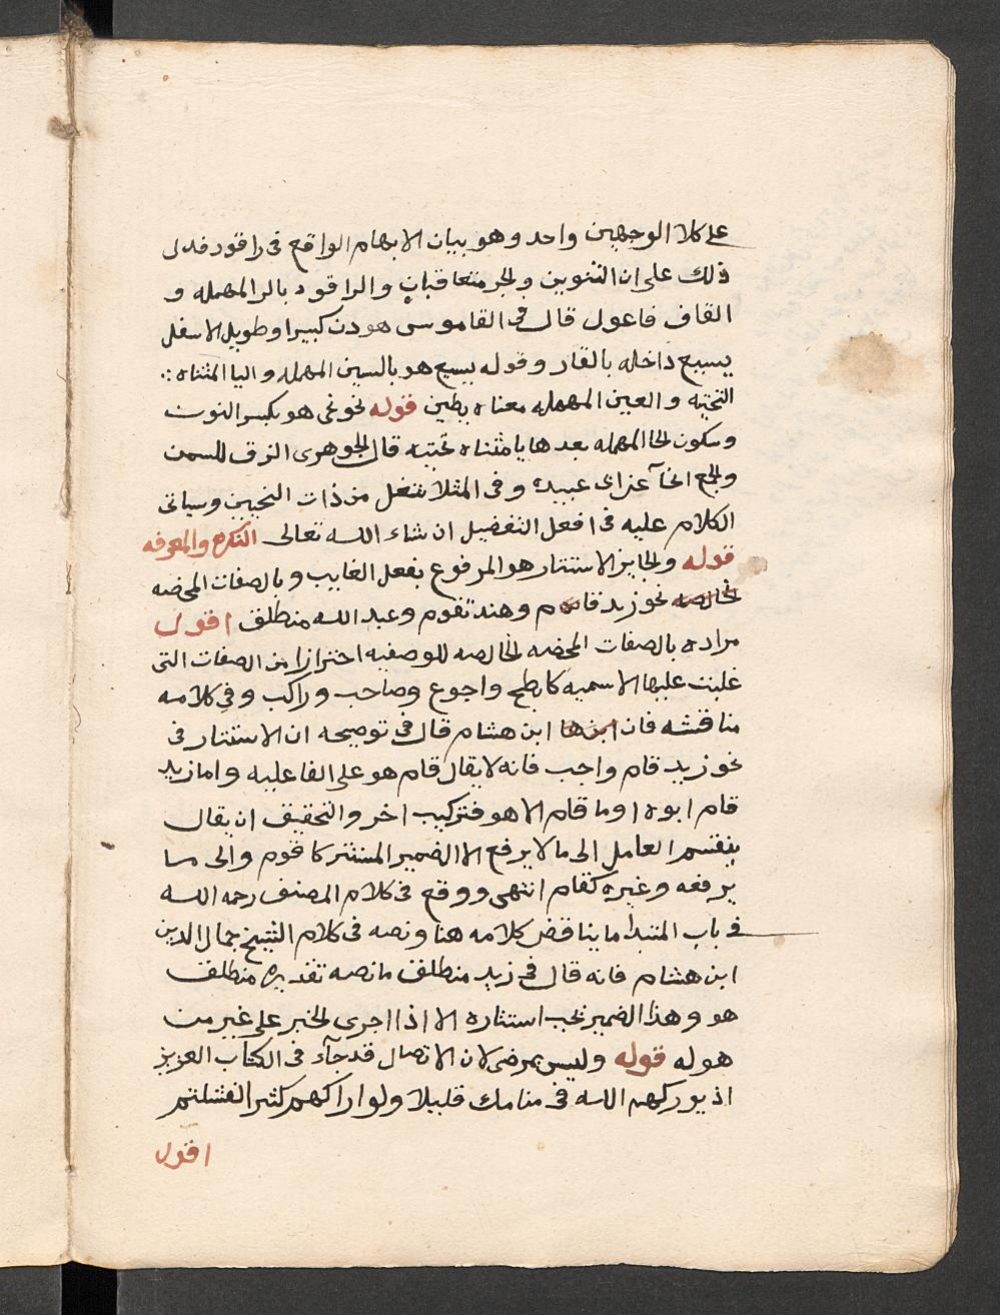 على كلا الوجهين واحد وهو بيان الابهام الواقع فى راقود فدل
ذلك على ان التنوين والجر متعاقبان والراقود بالرا المهمله و
القاف فاعول قال فى القاموس هو دن كبير او طويل الاسفل
يسيع داخله بالقار وقوله يسيع هو بالسين المهمله واليا المثناه
التحتيه والعين المهمله معناه يطين قوله نحو نحى هو بكسر النون
وسكون الحا المهمله بعدها يا مثناه تحتيه قال الجوهرى الزق للسمن
والجمع انحآ عن ابى عبيده وفى المثل اشغل من ذات النحيين وسياتى
الكلام عليه فى افعل التفضيل ان شاء الله تعالى النكره والمعرفه
قوله والجايز الاستتار هو المرفوع بفعل الغايب وبالصفات المحضه
الخالصه نحو زيد قام وهند تقوم وعبد الله منطلق اقول
مراده بالصفات المحضه الخالصه للوصفيه احترازا من الصفات التى
غلبت عليها الاسميه كابطح واجرع وصاحب وراكب وفى كلامه
مناقشه فان ابن هشام قال فى توضيحه ان الاستتار فى
نحو زيد قام واجب فانه لا يقال قام هو على الفاعليه واما زيد
قام ابوه او ما قام الا هو فتركيب اخر والتحقيق ان يقال
ينقسم العامل الى ما لا يرفع الا الضمير المستتر كاقوم والى ما
يرفعه وغيره كقام انتهى ووقع فى كلام المصنف رحمه الله
فى باب المبتدا ما يناقض كلامه هنا ونصه فى كلام الشيخ جمال الدين
ابن هشام فانه قال فى زيد منطلق ما نصه تقديره منطلق
هو وهذا الضمير يجب استتاره الا اذا اجرى الخبر على غير من
هو له قوله وليس بمرضى لان الاتصال قد جآء فى الكتاب العزيز
اذ يوركهم الله فى منامك قليلا ولو اراكهم كثيرا لفشلتم
اقول